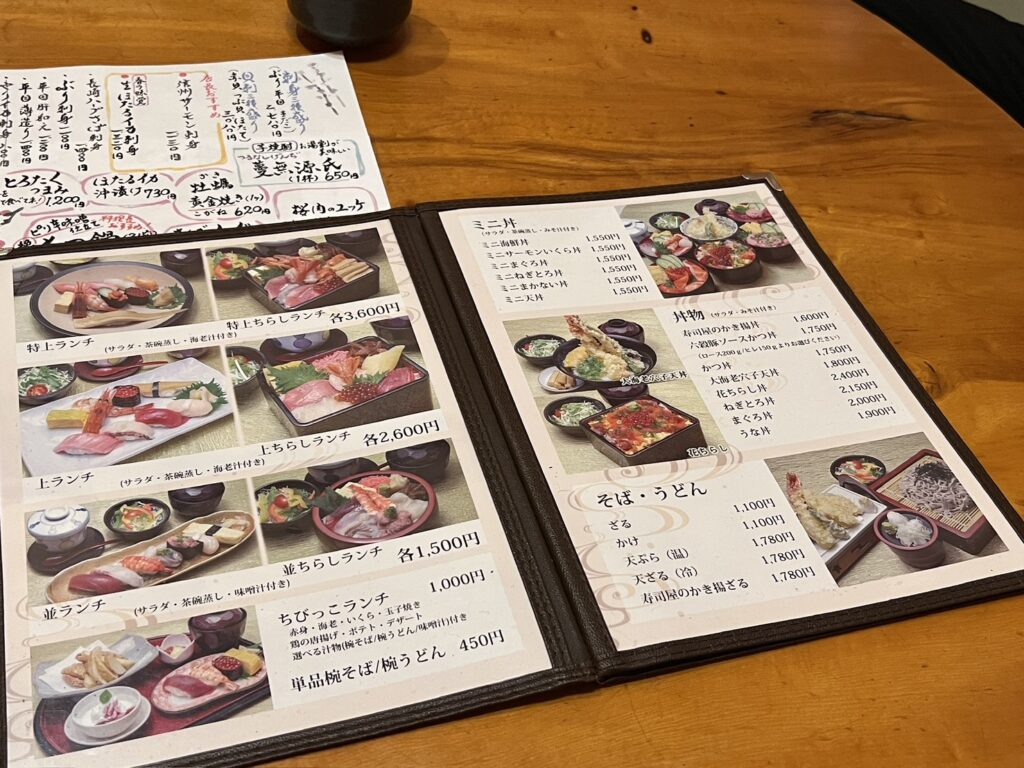 刺身三種盛り
(ぶり 平目 まだこ)
二、七八〇円
貝刺三種盛り
(赤貝 つぶ貝 ほたて)
三、〇八〇円
店長おすすめ
信州サーモン刺身
一二三〇円
春の味覚
生ほたるイカ刺身
一二三〇円
長崎ハーブさば刺身
ぶり刺身
平目肝和え
とろたく
つまみ
1,200円
ほたるイカ
沖漬け 730円
かき
牡蠣
黄金焼き(1ヶ)
こがね 620円
芋焼酎
お湯割が
美味しい
つるなしげんぢ
蔓無源氏
(1杯) 650円
桜肉のユッケ
ピリ辛味噌
仕立て
料理長
特上ランチ
(サラダ・茶碗蒸し・海老汁付き)
特上ちらしランチ 各3,600円
上ランチ
(サラダ・茶碗蒸し・海老汁付き)
上ちらしランチ 各2,600円
並ランチ
(サラダ・茶碗蒸し・味噌汁付き)
並ちらしランチ 各1,500円
ちびっこランチ 1,000円
赤身・海老・いくら・玉子焼き
鶏の唐揚げ・ポテト・デザート
選べる汁物(椀そば/椀うどん/味噌汁)付き
単品椀そば/椀うどん 450円
ミニ丼
(サラダ・茶碗蒸し・みそ汁付き)
ミニ海鮮丼 1,550円
ミニサーモンいくら丼 1,550円
ミニまぐろ丼 1,550円
ミニねぎとろ丼 1,550円
ミニまかない丼 1,550円
ミニ天丼 1,550円
丼物 (サラダ・みそ汁付き)
寿司屋のかき揚丼 1,600円
六穀豚ソースかつ丼 1,750円
(ロース200gとヒレ150gよりお選びください)
かつ丼 1,750円
大海老穴子天丼 1,800円
花ちらし丼 2,400円
ねぎとろ丼 2,150円
まぐろ丼 2,000円
うな丼 1,900円
大海老穴子天丼
花ちらし
そば・うどん
ざる 1,100円
かけ 1,100円
天ぷら(温) 1,780円
天ざる(冷) 1,780円
寿司屋のかき揚ざる 1,780円